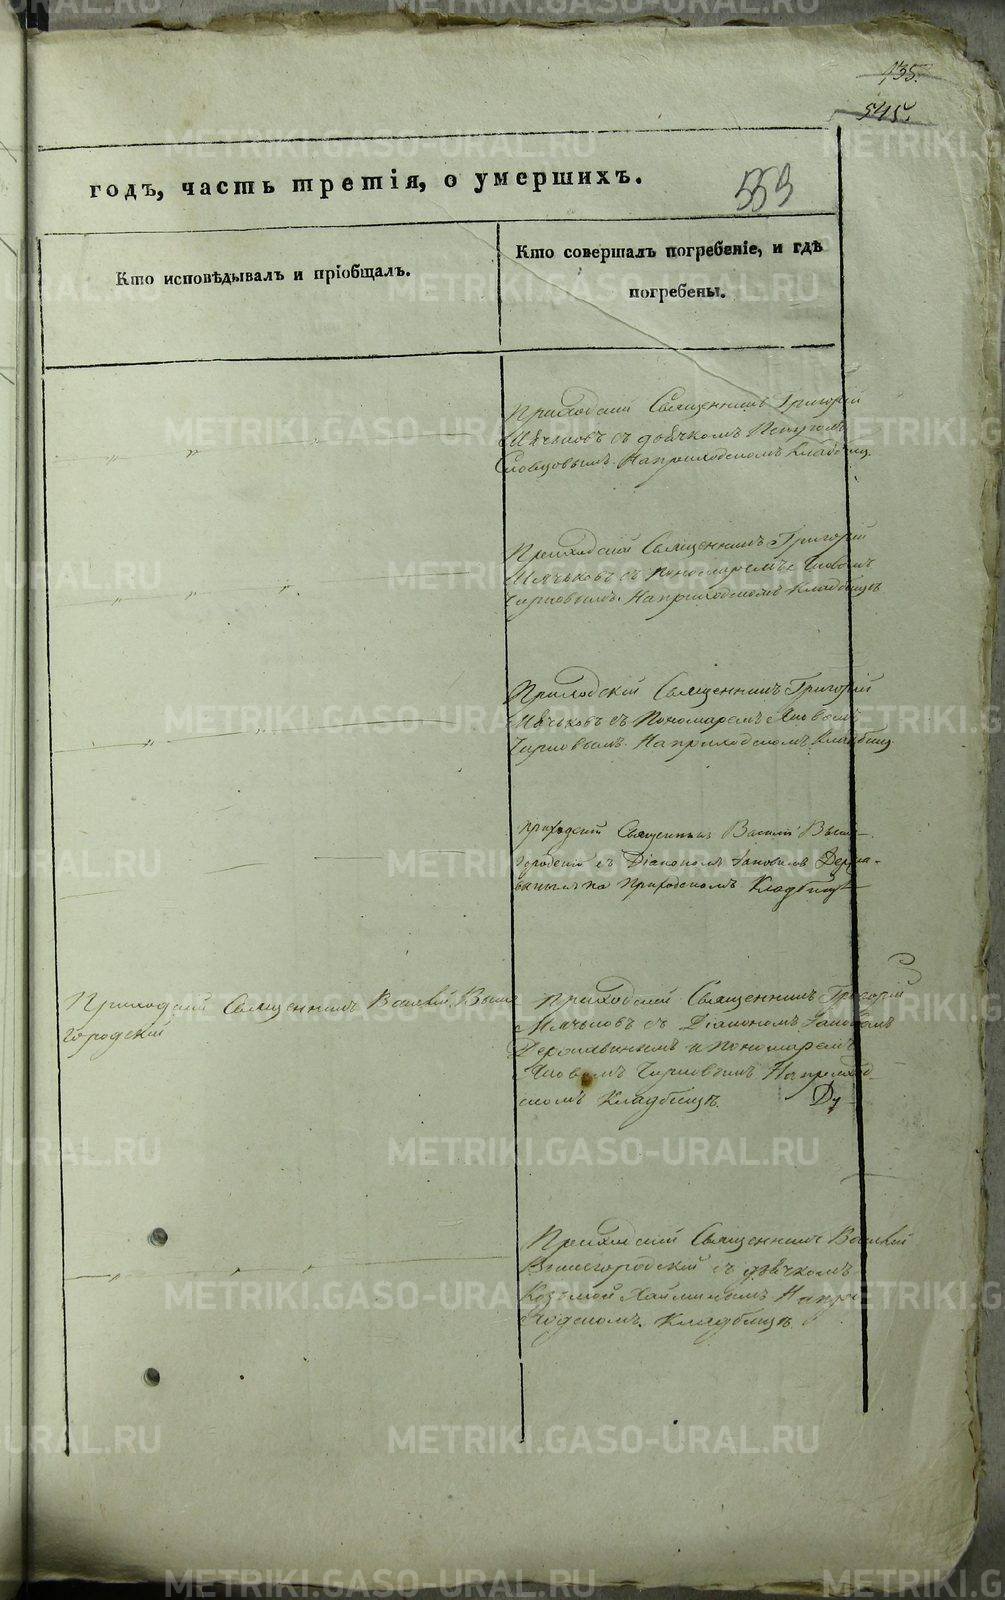 135.
545.
годъ, часть третія, о умершихъ.
559
Кто исповѣдывалъ и пріобщалъ.
Кто совершалъ погребеніе, и гдѣ
погребены.
Приходскій Священникъ Григорій
Мячьковъ съ дьячкомъ Петромъ
Словцовымъ. На приходскомъ Кладбищ.
Приходскій Священникъ Григорій
Мячьковъ съ Пономаремъ
На приходскомъ Кладбищѣ
Приходскій Священникъ Григорій
Мячьковъ съ Пономаремъ Яковомъ
На приходскомъ Кладбищ.
приходскій Священникъ Василій Выше-
городскій съ Діакономъ
на Приходскомъ Кладбищѣ
Приходскій Священникъ Василій Выше
городскій
Приходскій Священникъ Григорій
Мячьковъ съ Діакономъ
и Пономаремъ
Яковомъ На приход-
скомъ Кладбищѣ.
Приходскій Священникъ Василій
Вышегородскій съ дьячкомъ
Козьмой На при
ходскомъ Кладбищѣ.
METRIKI.GASO-URAL.RU